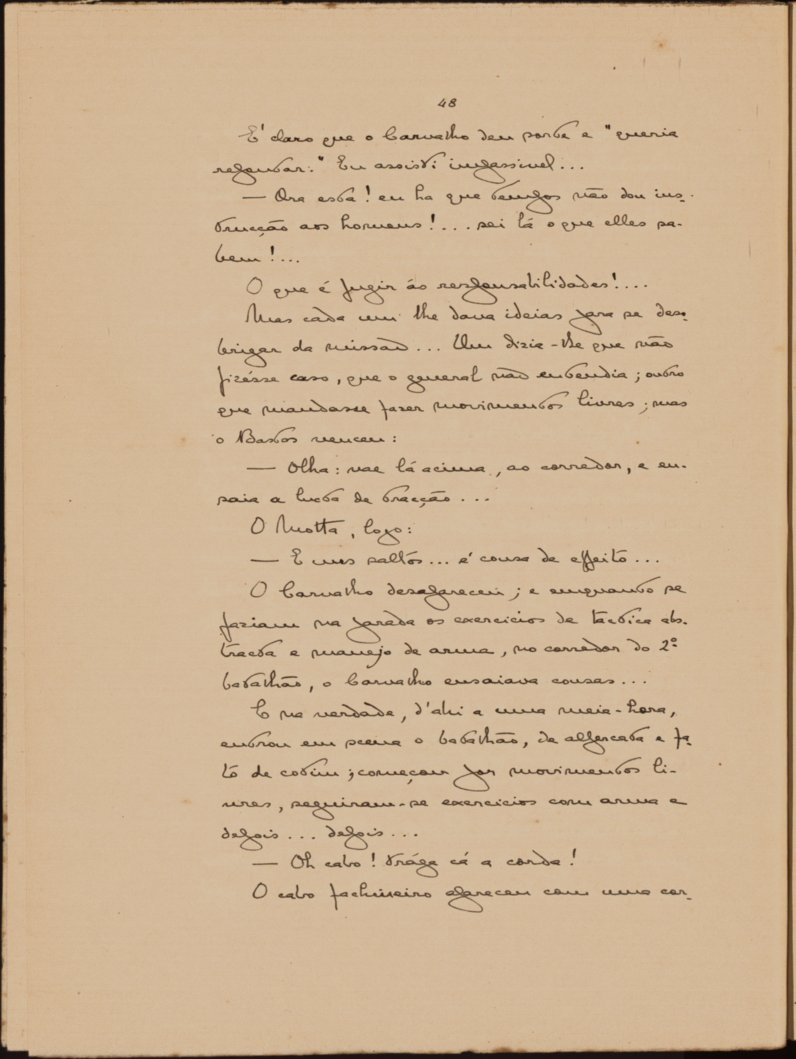 48
E' claro que o Carvalho deu sorte e "queria
refontar." Eu assisti impassivel...
— Ora esta! eu ha que tempos não dou ins-
trucção aos homens!... sei lá o que elles sa-
bem!...
O que é fugir ás responsabilidades!...
Mas cada um lhe dava ideias para se deso-
brigar da missão... Um dizia-lhe que não
fizésse caso, que o general não entendia; outro
que mandasse fazer movimentos livres; mas
o Bastos venceu:
— Olha: vae lá acima, ao corredor, e en-
saia a lucta de tracção...
O Motta, logo:
— E uns saltos... é cousa de effeito...
O Carvalho desapareceu; e emquanto se
faziam na parada os exercicios de tactica abs-
tracta e manejo de arma, no corredor do 2º
batalhão, o Carvalho ensaiava cousas...
E na verdade, d'ahi a uma meia-hora,
entrou em scena o batalhão, de alpercata e fa-
to de cotim; começou por movimentos li-
vres, seguiram-se exercicios com arma e
depois... depois...
— Oh cabo! trága cá a corda!
O cabo fachineiro apareceu com uma cor-